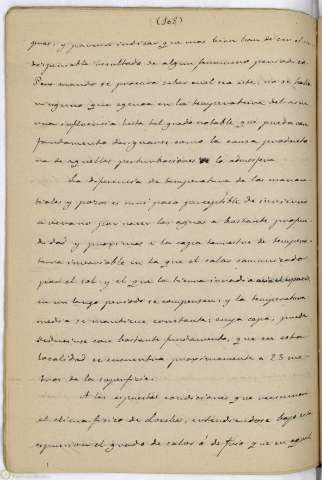 (168)
guas; y parecen indicar que mas bien han de ser el in
dispensable resultado de algun fenomeno periodico.
Pero cuando se procura saber cual sea este, no se halla
ninguno que egerza en la temperatura del aire
una influencia hasta tal grado notable que pueda con
fundamento designarse como la causa producto
ra de aquellas perturbaciones la admosfera
La diferencia de temperatura de los manan
tiales y pozos es muy poco susceptible de invierno
a verano por nacer las aguas a bastante profun
didad y proximas a la capa terrestre de tempera
tura invariable en la que el calor comunicado
por el sol y el que la tierra irradia
en un largo periodo se compensan; y la temperatura
media se mantiene constante; cuya capa, puede
deducirse con bastante fundamento, que en esta
localidad se encuentra proximamente a 23 me
tros de la superficie.
A las espuestas condiciones que
el clima fisico de Lorca, entendiendose bajo esta
espresion el grado de calor ó de frio que en aquel